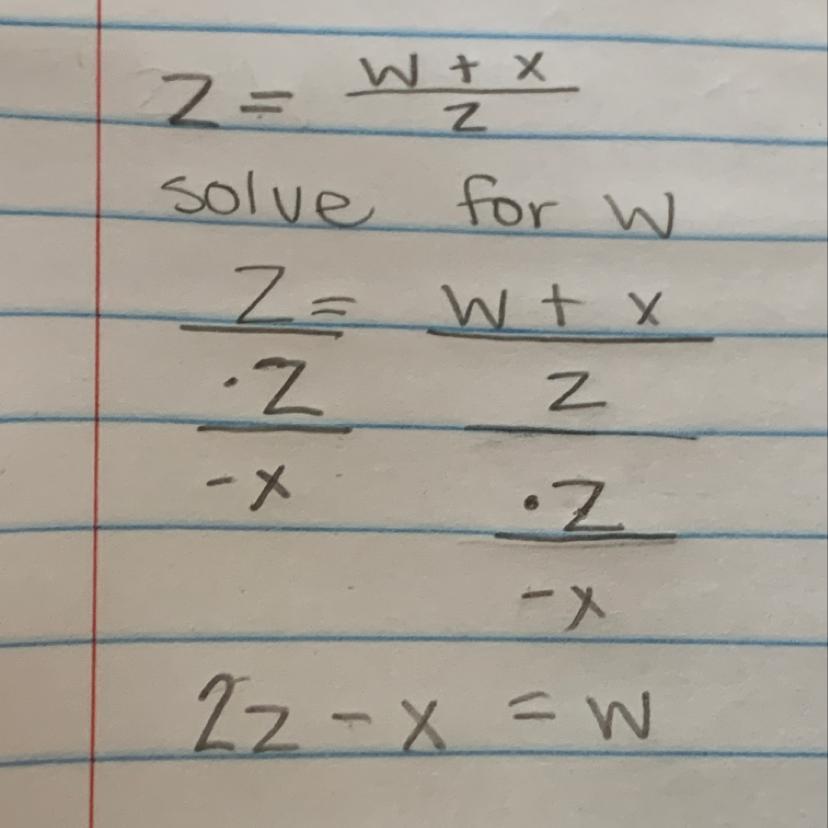 Z = w + x / z
solve for w
Z = w + x
·Z z
-x ·Z
-x
2z - x = w